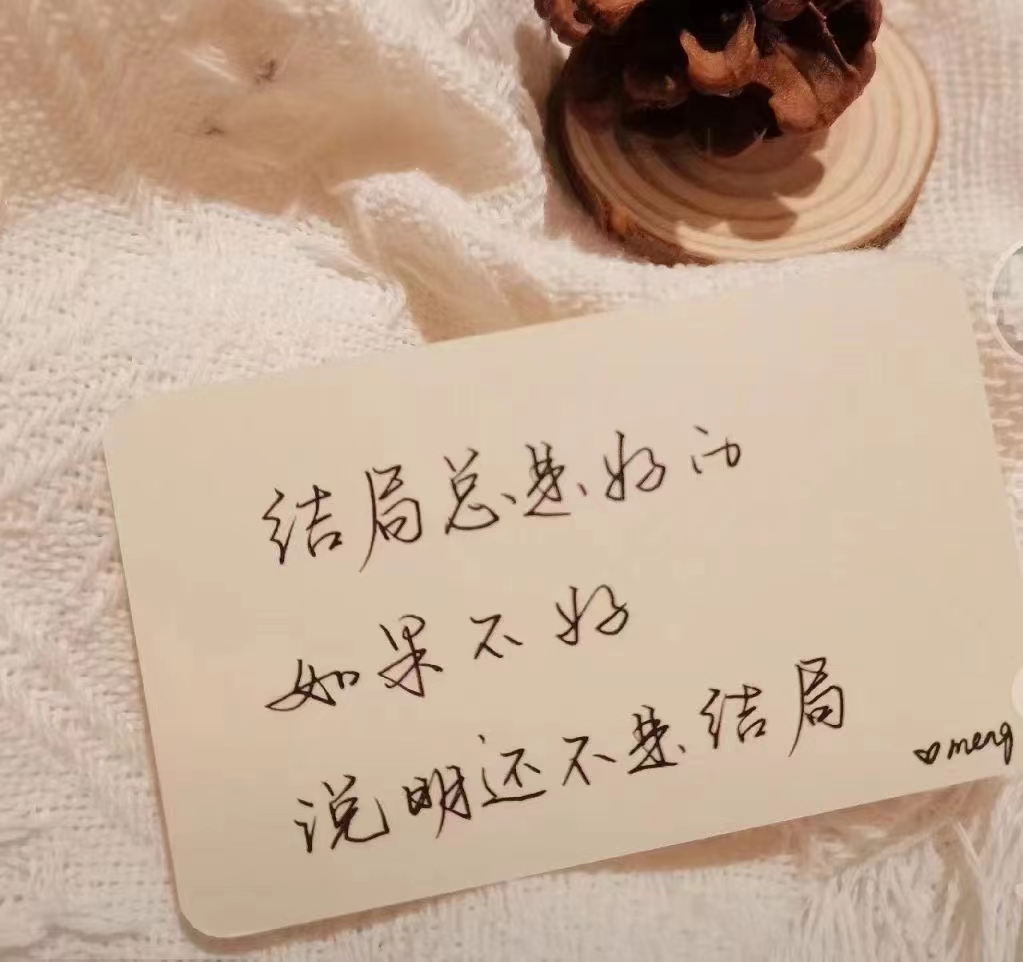 结局总是好的
如果不好
说明还不是结局
♡meng